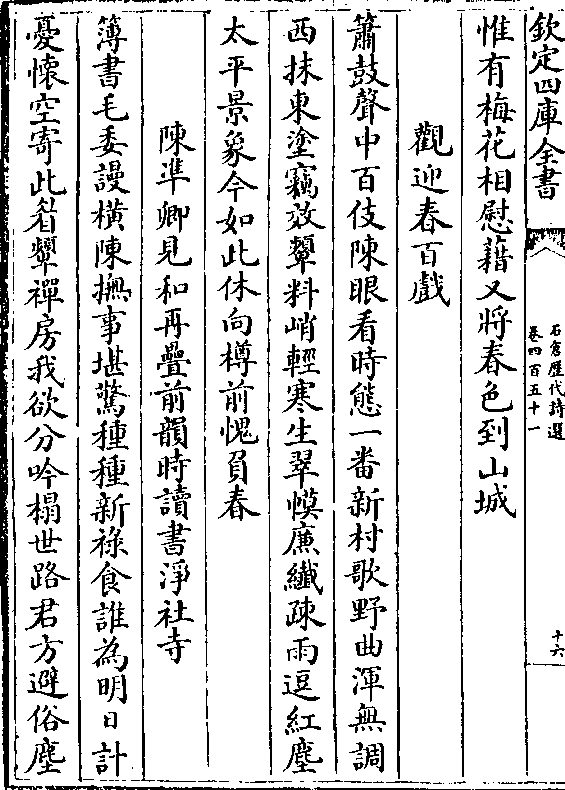 欽定四庫全書
石倉歷代詩選
卷四百五十一
十六
惟有梅花相慰藉又將春色到山城
觀迎春百戲
簫鼓聲中百伎陳眼看時態一番新村歌野曲渾無調
西抹東塗竊效顰料峭輕寒生翠幙廉纖疎雨逗紅塵
太平景象今如此休向樽前愧負春
陳準卿見和再疊前韻時讀書淨社寺
簿書毛委謾橫陳撫事堪驚種種新祿食誰為明日計
憂懷空寄此眉顰禪房我欲分吟榻世路君方避俗塵